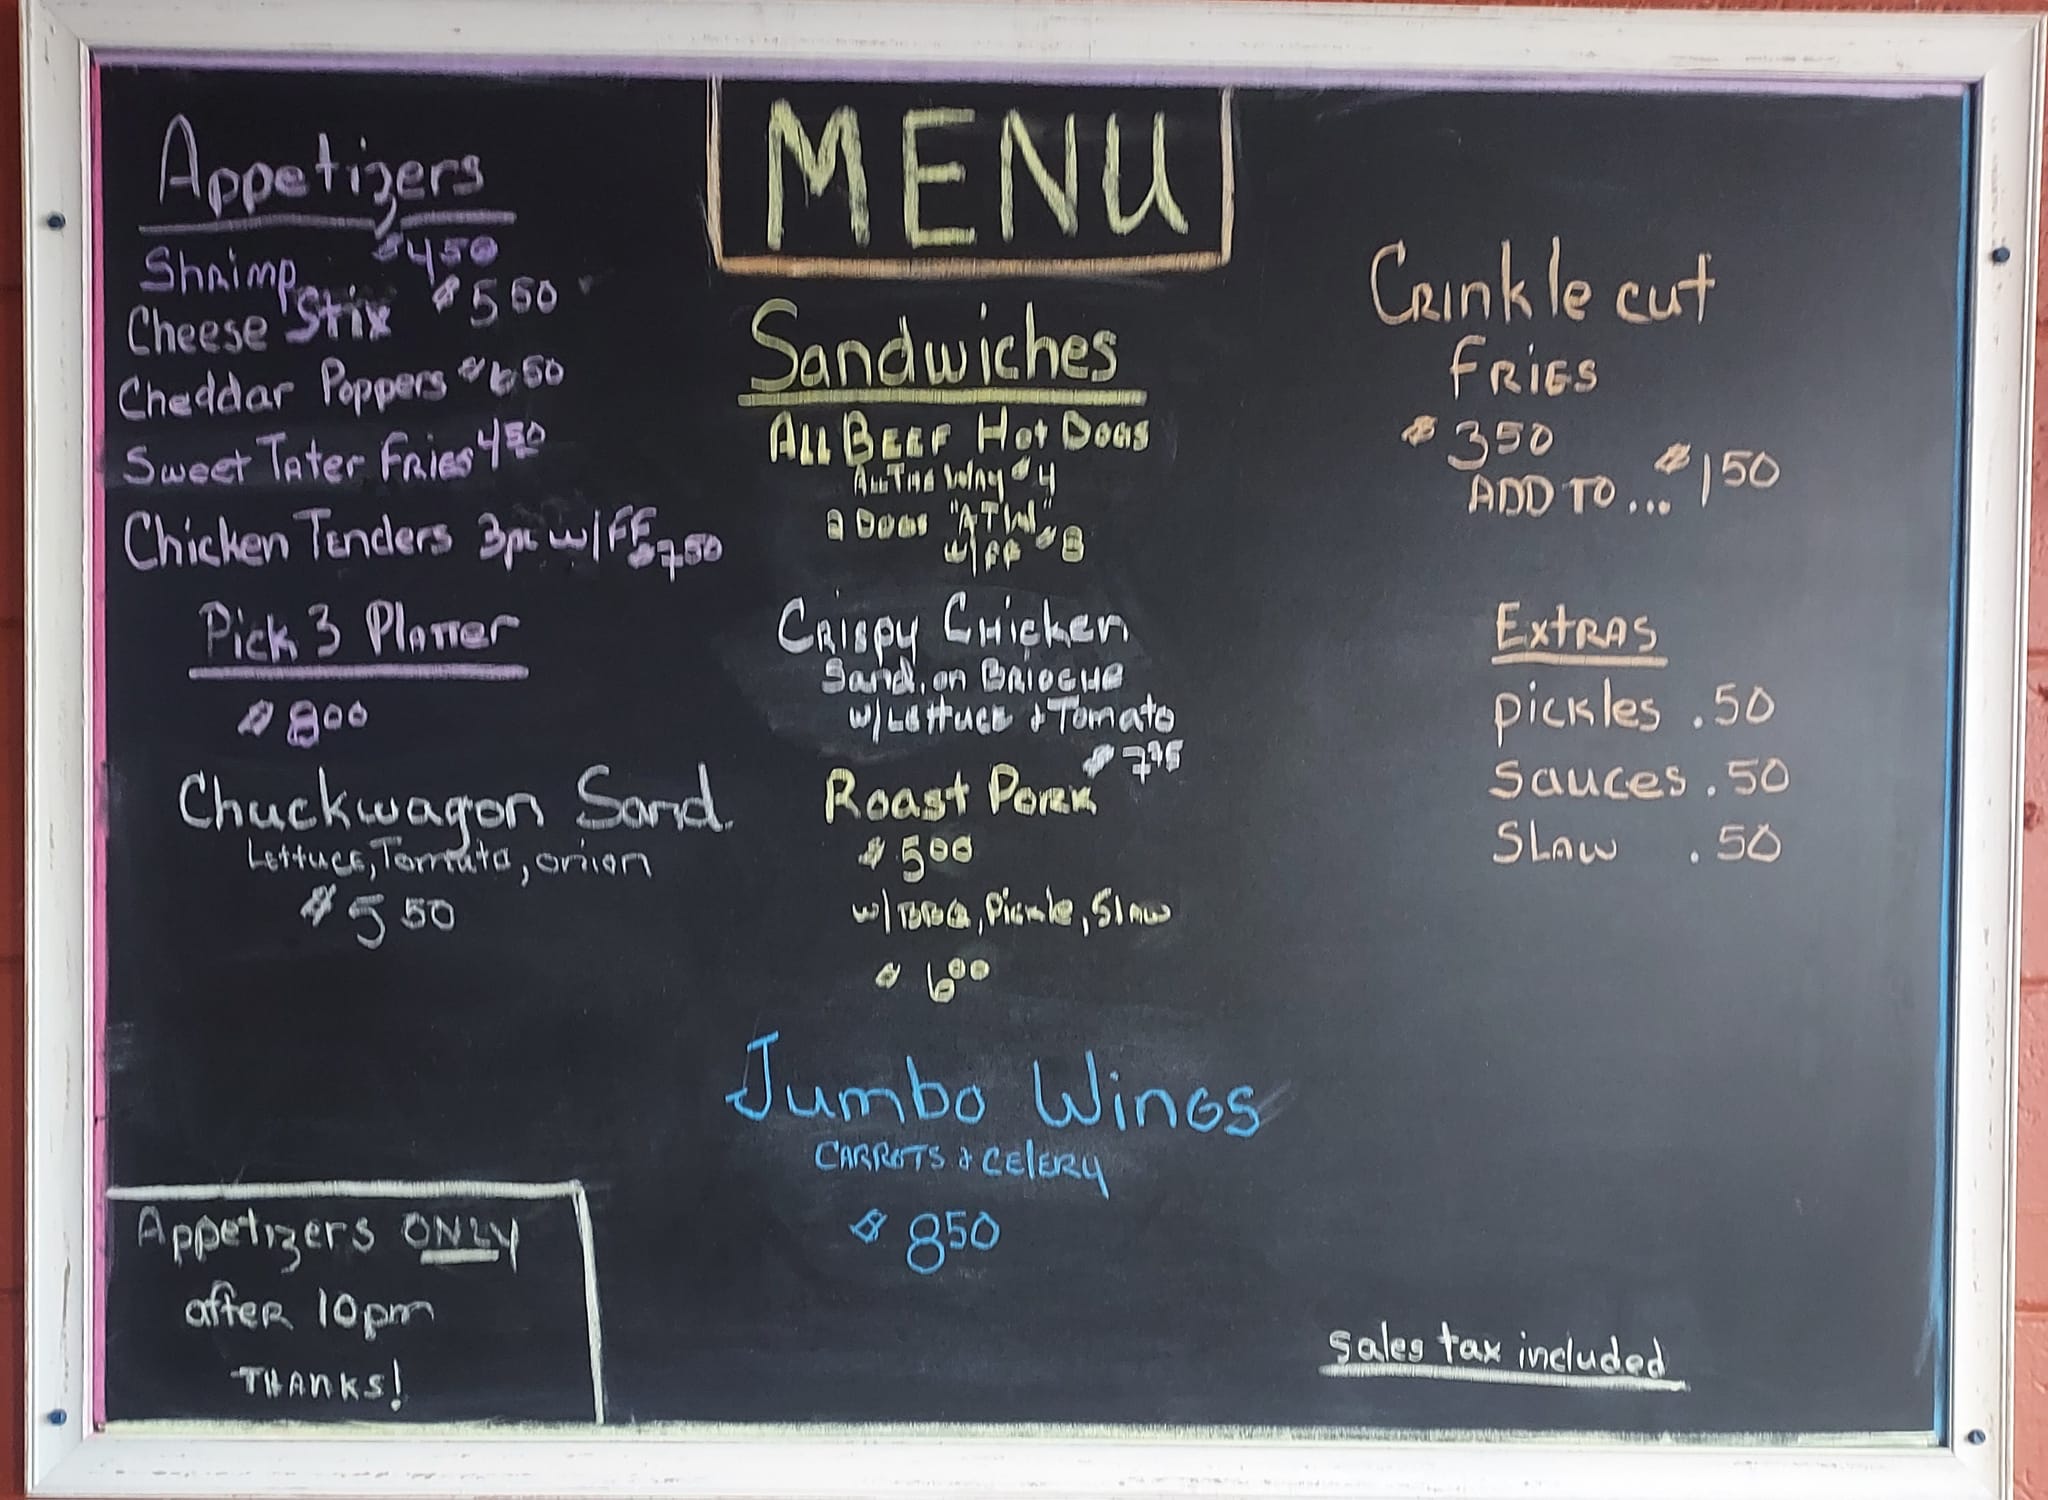 MENU
Appetizers
Shrimp $4.50
Cheese Stix $5.50
Cheddar Poppers $6.50
Sweet Tater Fries 4.50
Chicken Tenders 3pc w/FF $7.50
Pick 3 Platter
$8.00
Chuckwagon Sand.
Lettuce, Tomato, onion
$5.50
Appetizers ONLY
after 10pm
THANKS!
Sandwiches
All Beef Hot Dogs
All The Way $4
2 Dogs "ATW"
w/FF $8
Crispy Chicken
Sand. on Brioche
w/Lettuce & Tomato
Roast Pork
$5.00
w/BBQ, Pickle, Slaw
$6.00
Jumbo Wings
Carrots & Celery
$8.50
Crinkle cut
Fries
$3.50
ADD TO... $1.50
Extras
pickles .50
Sauces .50
Slaw .50
sales tax included